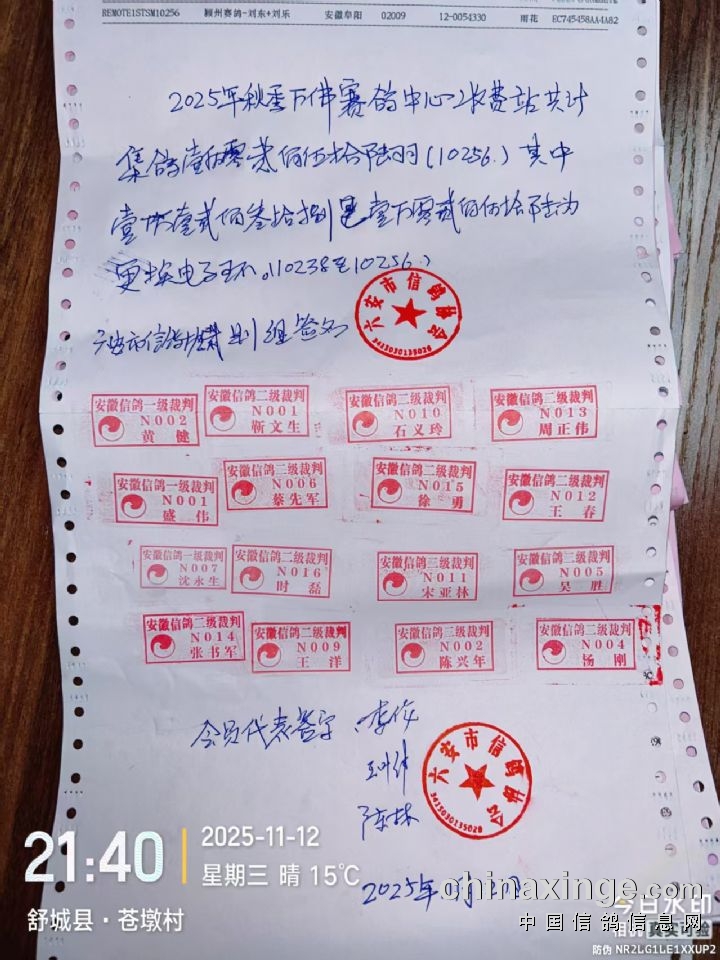 REMOTE1STSM10256 颍州赛鸽-刘东+刘乐 安徽阜阳 02009 12-0054330 雨花 EC745458AA4A82
2025年秋季万佛赛鸽中心收费站共计
集鸽壹万零贰佰伍拾陆羽(10256.)其中
壹万零贰佰叁拾捌至壹万零贰佰伍拾陆为
更换电子环。(10238至10256.)
六安市信鸽协会裁判组签名
六安市信鸽协会
3415030135028
安徽信鸽一级裁判 N002 黄健
安徽信鸽二级裁判 N001 靳文生
安徽信鸽二级裁判 N010 石义玲
安徽信鸽二级裁判 N013 周正伟
安徽信鸽一级裁判 N001 盛伟
安徽信鸽二级裁判 N006 蔡先军
安徽信鸽二级裁判 N015 徐勇
安徽信鸽二级裁判 N012 王春
安徽信鸽一级裁判 N007 沈永生
安徽信鸽二级裁判 N016 时磊
安徽信鸽三级裁判 N011 宋亚林
安徽信鸽二级裁判 N005 吴胜
安徽信鸽二级裁判 N014 张书军
安徽信鸽二级裁判 N009 王洋
安徽信鸽二级裁判 N002 陈兴年
安徽信鸽二级裁判 N004 杨刚
会员代表签字
陈林
六安市信鸽协会
3415030135028
2025年
21:40
2025-11-12
星期三 晴 15℃
舒城县·苍墩村
chinaxinge.com
中国信鸽信息网
今日水印
相机 真实可验
防伪 NR2LG1LE1XXUP2